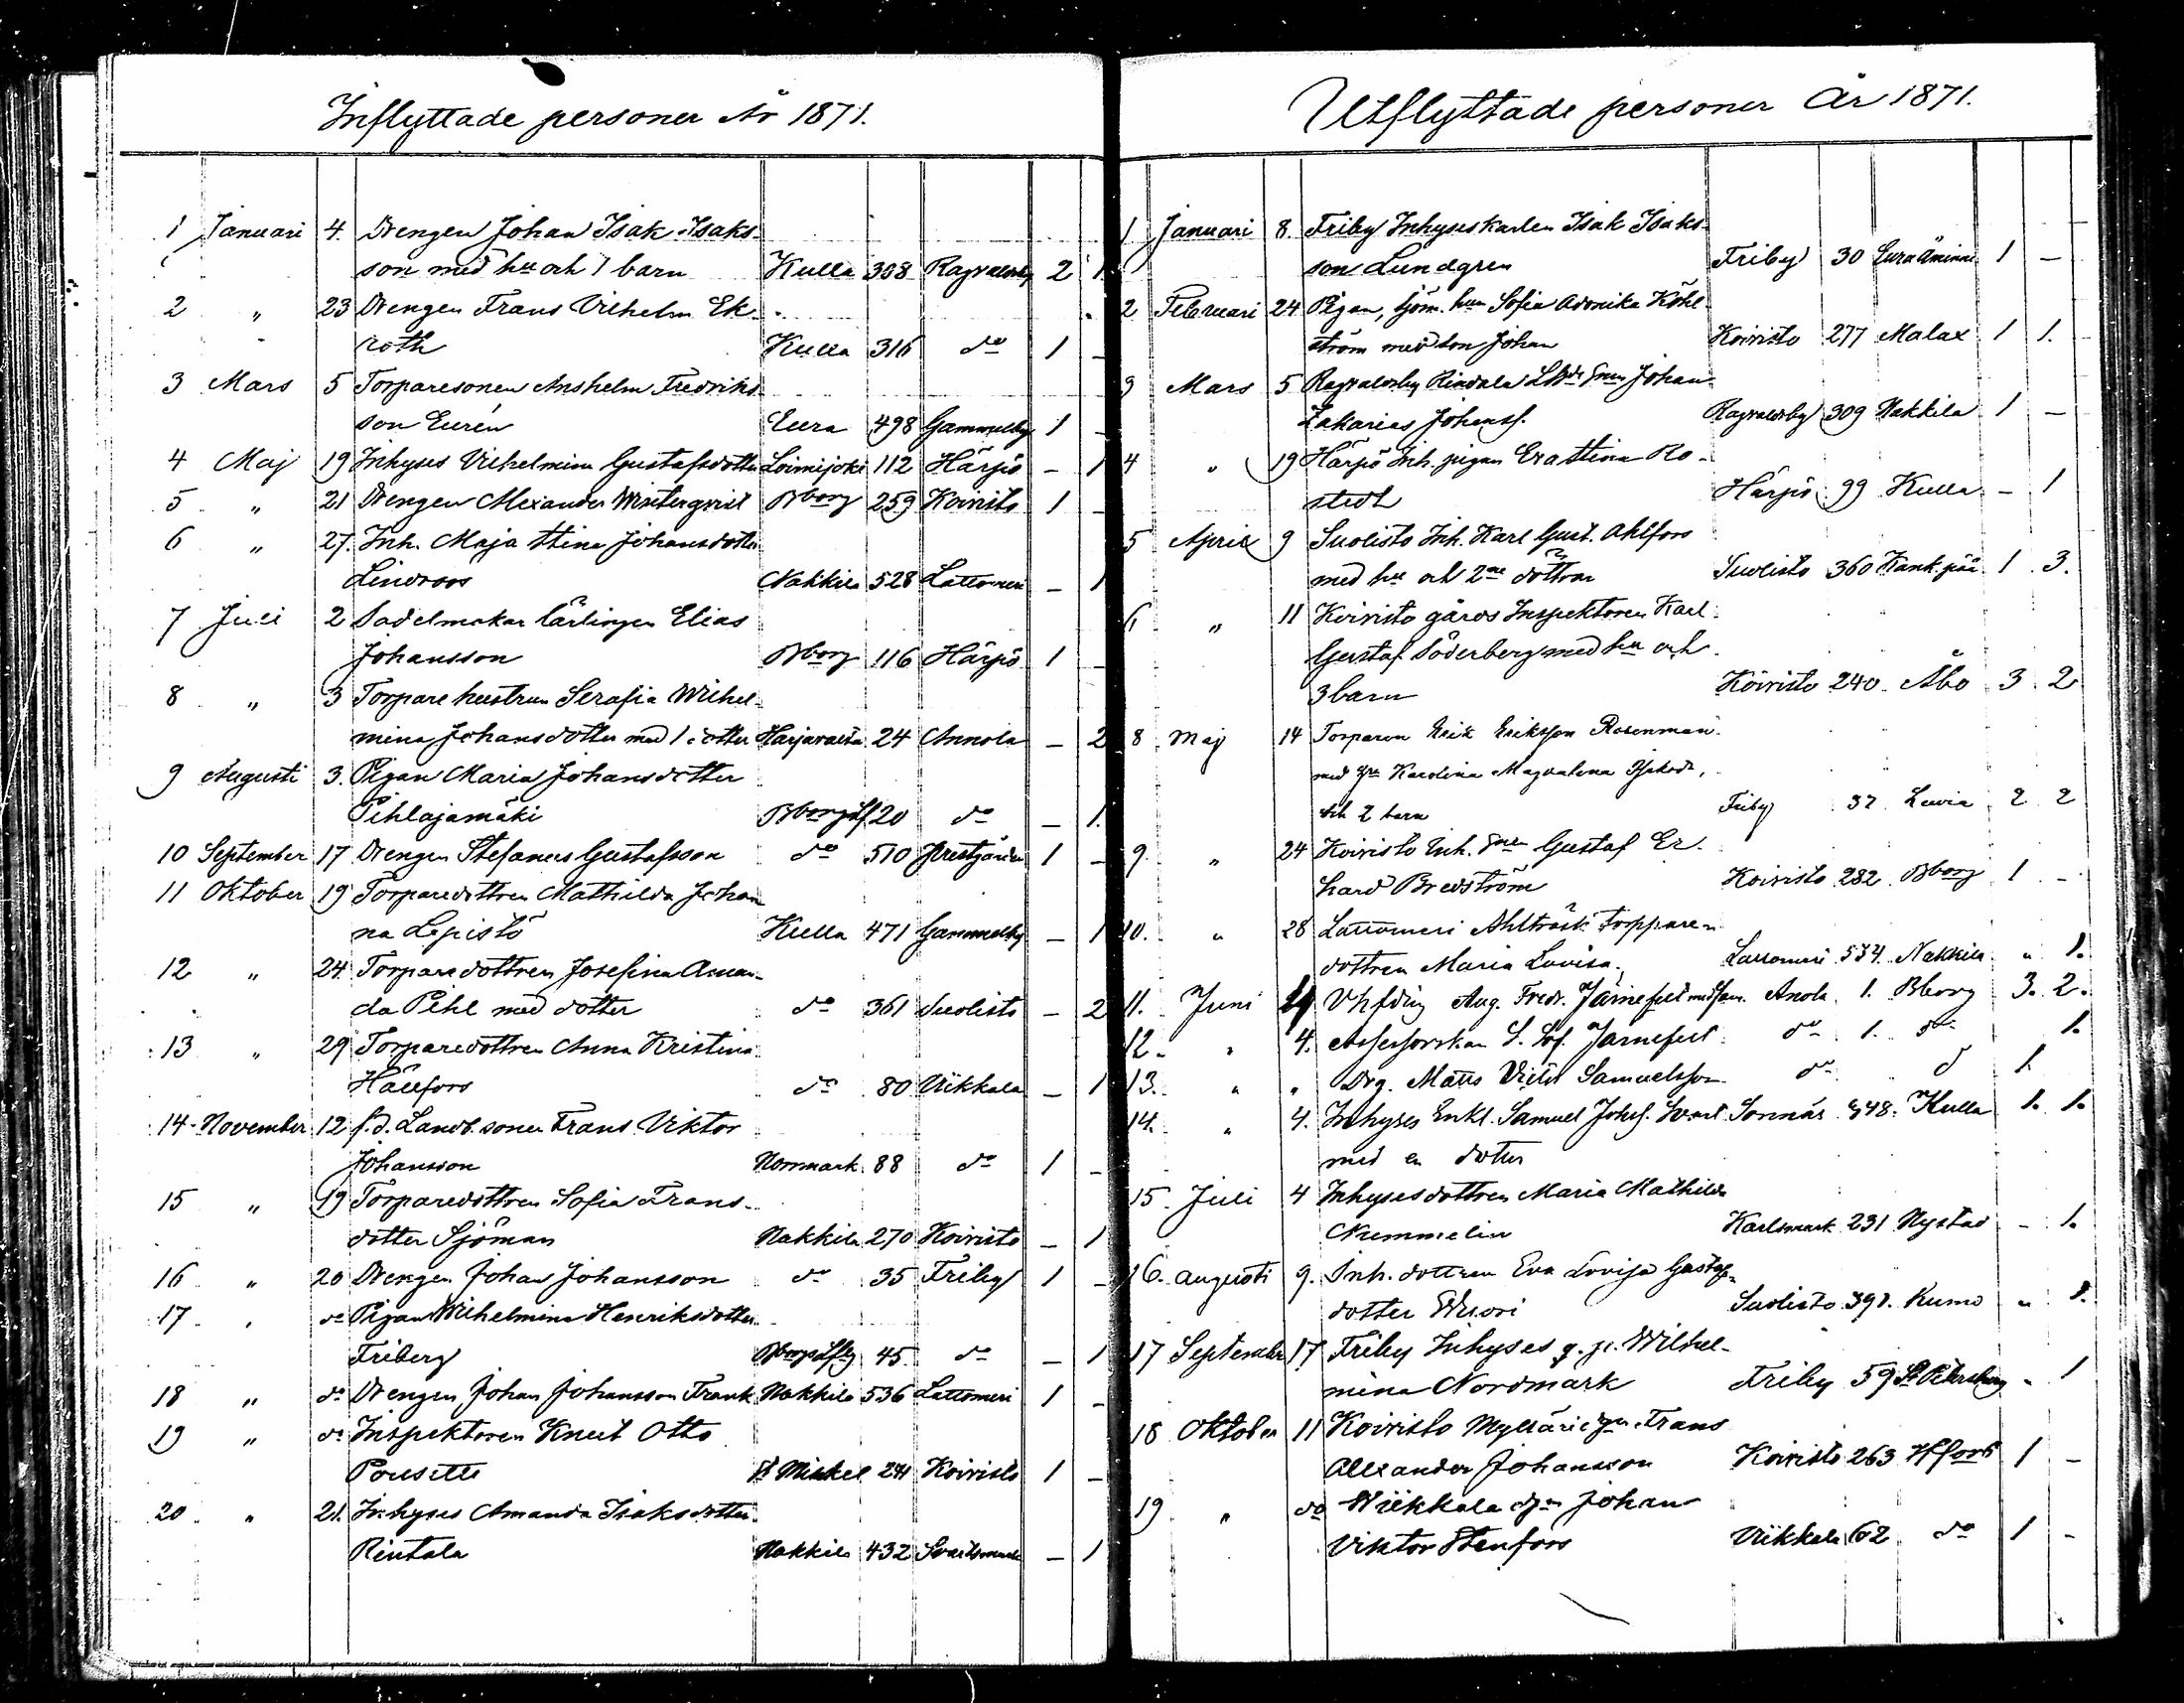 Inflyttade personer År 1871.
1 Januari 4. Drengen Johan Isak Isaks-
son med hu och 1 barn Kulla 308 Ragvaldsby 2 1
2 " 23 Drengen Frans Vilhelm Ek-
roth Kulla 316 do 1 -
3 Mars 5 Torparesonen Anshelm Fredriks-
son Eurén Eura 498 Gammelby 1 -
4 Maj 19 Inhyses Vilhelmina Gustafsdotter Loimijoki 112 Härpö - 1
5 " 21 Drengen Alexander Winterqvist Bborg 259 Koivisto 1 -
6 " 27. Inh. Maja Stina Johansdotter
Lindroos Nakkila 528 Lattomeri - 1
7 Juli 2 Sadelmakar lärlingen Elias
Johansson Bborg 116 Härpö 1 -
8 " 3 Torpare hustrun Serafia Wilhel-
mina Johansdotter med 1 dotter Harjavalta 24 Annola - 2
9 Augusti 3. Pigan Maria Johansdotter
Pihlajamäki 20 do - 1.
10 September 17 Drengen Stefanus Gustafsson do 510 Prestgården 1 -
11 Oktober 19 Torparedottren Mathilda Johan
na Lepistö Kulla 471 Gammelby - 1
12 " 24. Torparedottren Josefina Aman-
da Pihl med dotter do 361 Suolisto - 2
13 " 29 Torparedottren Anna Kristina
Hällfors do 80 Viikkala - 1
14 November 12 f.d. Landb. sonen Frans Viktor
Johansson Norrmark 88 do 1 -
15 " 19 Torparedottren Sofia Frans-
dotter Sjöman Nakkila 270 Koivisto - 1
16 " 20 Drengen Johan Johansson do 35 Friby 1 -
17 do Pigan Wilhelmina Henriksdotter
Friberg 45 do - 1
18 " do Drengen Johan Johansson Frank Nakkila 536 Lattomeri 1 -
19 " do Inspektoren Knut Otto
Pousette St Mickel 241 Koivisto 1 -
20 " 21. Inhyses Amanda Isaksdotter
Rintala Nakkila 432 Svartsmark - 1
Utflyttade personer År 1871.
1 Januari 8. Friby Inhyseskarlen Isak Isaks-
son Lundgren Friby 30 Eura Åminne 1 -
2 Februari 24 Pigan, sjöm. hun Sofia Kohl-
ström med son Johan Koivisto 277 Malax 1 1.
3 Mars 5 Ragvaldsby Rindala Johan
Zakarias Johanss. Ragvaldsby 309 Nakkila 1 -
4 " 19 Härpö Inh. pigan Eva Stina Ro-
stedt Härpö 99 Kulla - 1
5 April 9 Suolisto Inh. Karl Gust. Ahlfors
med hu och 2ne döttrar Suolisto 360 Kankpää 1 3.
6 " 11 Koivisto gårds Inspektoren Karl
Gustaf Söderberg med hu och
3 barn Koivisto 240 Åbo 3 2
8 Maj 14 Torparen Erik Eriksson Rosenman
med Karolina Magdalena
och 2 barn Friby 37 Luvia 2 2
9. " 24 Koivisto Inh. Gustaf Er-
hard Bredström Koivisto 282 Bborg 1 -
10. " 28 Lattomeri Ahlträsk Torppare-
dottren Maria Lovisa Lattomeri 534. Nakkila " 1.
11. Juni Aug. Fredr. Järnefelt med fam. Anola 1. Bborg 3. 2.
12. " 4. Assessorskan S. Sof. Järnefelt do 1. do 1.
13. " " Drg. Matts Samuelsson do 1.
14. " 4. Inhyses Enkl. Samuel Johss. Sonnäs 448. Kulla 1. 1.
med en dotter
15. Juli 4 Inhysesdottren Maria Mathilda
Nummelin Karlsmark 231 Nystad - 1.
16. Augusti 9. Inh. dottren Eva Lovisa Gustafs-
dotter Wuori Suolisto 391. Kumo " 1.
17 September 17 Friby Inhyses q. p. Wilhel-
mina Nordmark Friby 59 St Petersburg - 1
18 Oktober 11 Koivisto Mylläri Frans
Alexander Johansson Koivisto 263 Hfors 1 -
19 " do Wiikkala Johan
Viktor Stenfors Viikkala 62 do 1 -